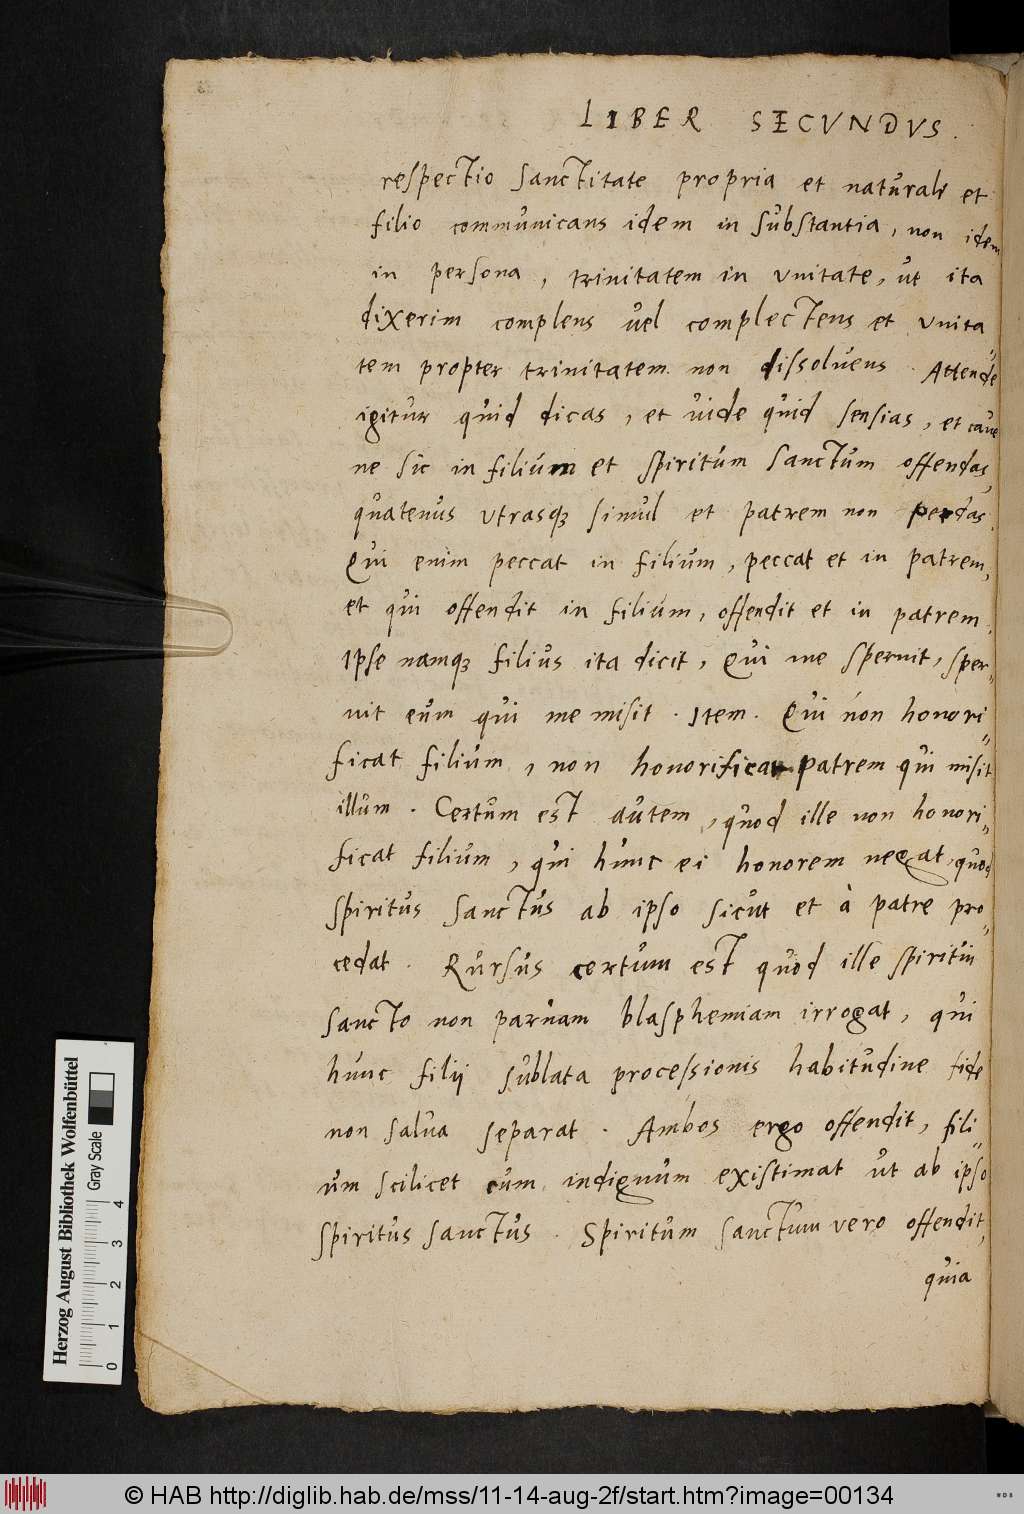 LIBER SECVNDVS.
respectio sanctitate propria et naturali et
filio communicans idem in substantia, non idem
in persona, trinitatem in vnitate, ut ita
dixerim complens vel complectens et vnita„
tem propter trinitatem non dissoluens. Attende
igitur quid dicas, et uide quid sensias, et caue
ne sic in filium et spiritum sanctum offendas,
quatenus vtrasq3 simul et patrem non perdas.
Qui enim peccat in filium, peccat et in patrem,
et qui offendit in filium, offendit et in patrem.
Ipse namq3 filius ita dicit, Qui me spernit, sper„
nit eum qui me misit. Item. Qui non honori„
ficat filium, non honorificat patrem qui misit
illum. Certum est autem, quod ille non honori„
ficat filium, qui hunc ei honorem negat, quod
spiritus sanctus ab ipso sicut et à patre pro„
cedat. Rursus certum est quod ille spiritui
sancto non paruam blasphemiam irrogat, qui
hunc filij sublata processionis habitudine fide
non salua separat. Ambos ergo offendit, fili„
um scilicet cum indignum existimat ut ab ipso
spiritus sanctus. Spiritum sanctum vero offendit,
quia
Herzog August Bibliothek Wolfenbüttel
Gray Scale
0 1 2 3 4
© HAB http://diglib.hab.de/mss/11-14-aug-2f/start.htm?image=00134